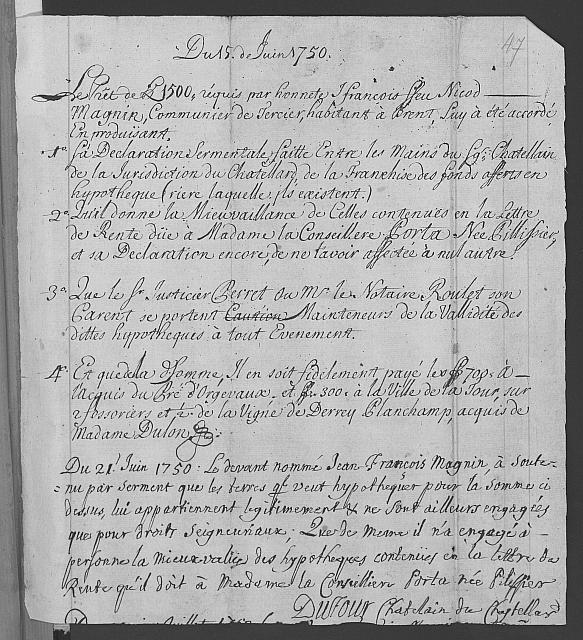 47
Du 15. de Juin 1750.
Le Prêt de £ 1500, requis par honnete Jfrançois ffeu Nicod
Magnin, Communier de Tercier, habitant à Brent, Luy à été accordé
En produisant,
1°. La Declaration Sermentale, faitte Entre les Mains du Sgr. Chatellain
de la Jurisdiction du Chatellard, de la Franchise des fonds offerts en
hypotheque (riere laquelle Ils éxistent.)
2° Qu'il donne la Mieuvaillance de Celles contenues en la Lettre
de Rente düe à Madame la Conseillere Porta Née Pillissier,
et sa Declaration encore, de ne l'avoir affectée à nul autre.
3° Que le Sr. Justicier Perret ou Mr. le Notaire Roulet son
Parent se portent Caution Mainteneurs de la Vallidité des
dittes hypotheques à tout Evenement.
4° Et que de la ditte Somme, Il en soit fidelement payé les 700. à
l'acquis du Pré d'Orgevaux, et 300. à la Ville de la Tour, sur
2 fossoriers et ½ de la Vigne de Derrey Planchamp, acquis de
Madame Dulon
Du 21e. Juin 1750. Le devant nommé Jean François Magnin, à Soute-
nu par Serment que les terres qu'il veut hypothequer pour la Somme ci
dessus, lui appartiennent legitimement & ne sont ailleurs engagées
que pour droits Seigneuriaux; Que de meme il n'a engagé à
personne la mieux value des hypotheques contenües en la lettre de
Rente qu'il doit à Madame la Conseillere Porta née Pilissier
DuFour Chatelain du Chatellard